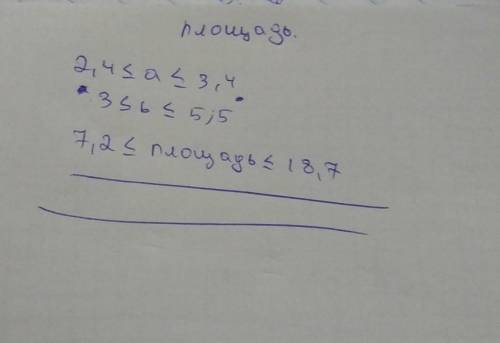 площадь.
2,4 ≤ a ≤ 3,4
· 3 ≤ b ≤ 5,5 ·
7,2 ≤ площадь ≤ 18,7